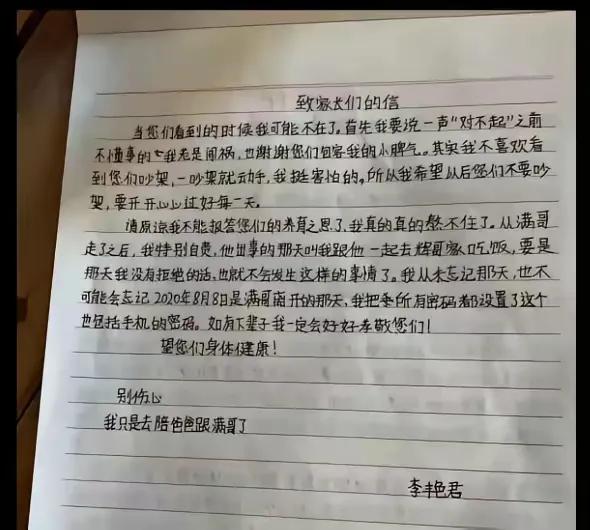 致家长们的信
当您们看到的时候我可能不在了。首先我要说一声“对不起”之前
不懂事的我老是闹祸,也谢谢您们包容我的小脾气。其实我不喜欢看
到您们吵架,一吵架就动手,我挺害怕的。所以我希望从后您们不要吵
架,要开开心心过好每一天。
请原谅我不能报答您们的养育之恩了,我真的真的熬不住了。从满哥
走了之后,我特别自责,他出事的那天叫我跟他一起去辉哥家吃饭,要是
那天我没有拒绝的话,也就不会发生这样的事情了。我从未忘记那天,也不
可能会忘记2020年8月8日是满哥离开的那天,我把所有密码都设置了这个
也包括手机的密码。如有下辈子我一定会好好孝敬您们!
望您们身体健康!
别伤心
我只是去陪爸爸跟满哥了
李艳君